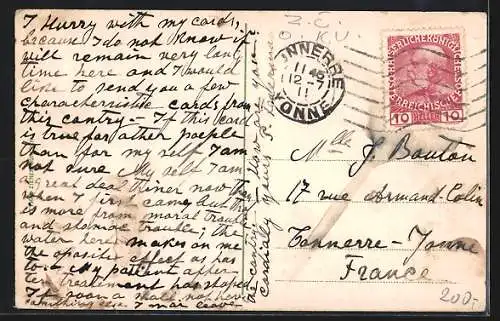 I Hurry with my cards,
because I do not know if
will remain very long
time here and I would
like to send you a few
characheristic cards from
this contry - If this card
is true for ather poeple
than for my self I am
not sure My self I am
a real deal thiner now than
when I first came but this
is more from moral trouble
and stomac trouble; the
water here makes on me
the oposite effect as has
to - My patient after
ter treakement has stoped
If soon a shall not have
something else I mar leave
the contry - Hellow
cordially yours
Z. C.
O. K. U.
TONNERRE
11 45
12 -7
11
YONNE
KAISERLICHE KÖNIGLICHE
ÖSTERREICHISCHE
10 HELLER 10
Mlle J. Bouton
17 rue Armand-Colin
Tonnerre-Yonne
France
200,-